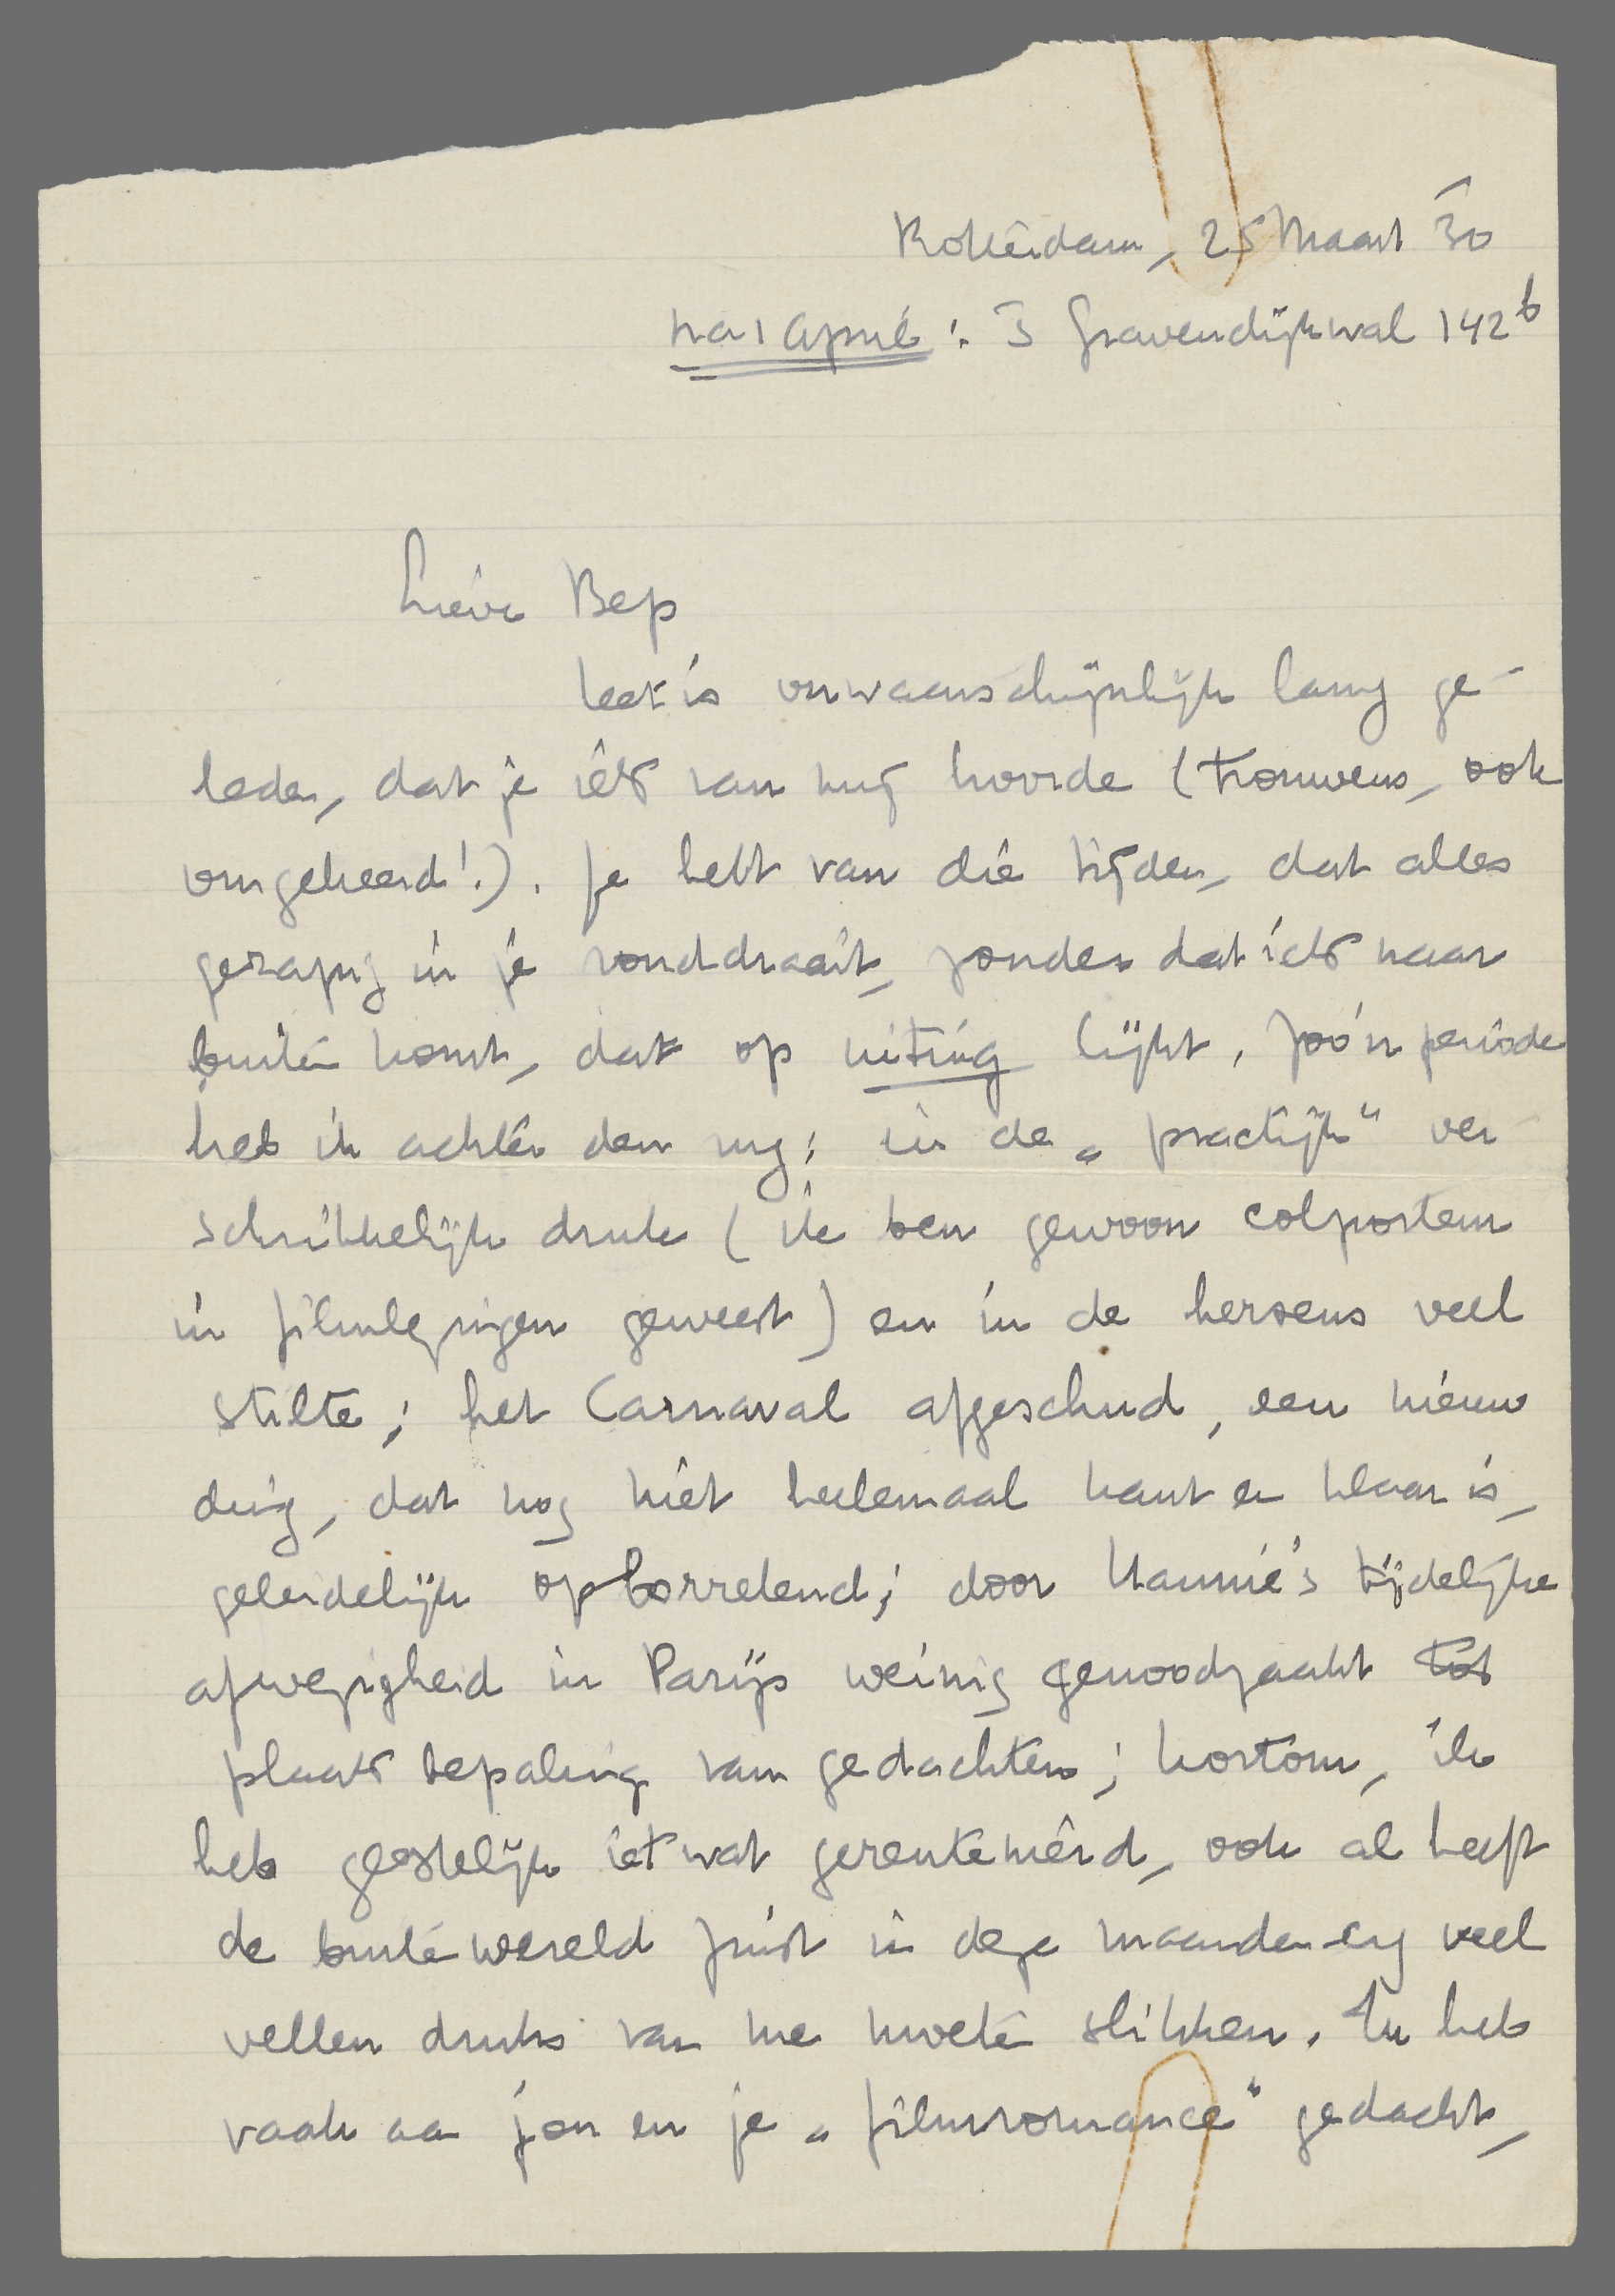 Rotterdam, 25 Maart '30
na 1 April: 's Gravendijkwal 142b
Lieve Bep
het is onwaarschijnlijk lang ge-
leden, dat je iets van mij hoorde (trouwens, ook
omgekeerd!). Je hebt van die tijden, dat alles
gezapig in je ronddraait, zonder dat iets naar
buiten komt, dat op uiting lijkt. Zoo'n periode
heb ik achter den rug: in de „practijk" ver-
schrikkelijk druk (ik ben gewoon colporteur
in filmlezingen geweest) en in de hersens veel
stilte; het Carnaval afgeschud, een nieuw
ding, dat nog niet heelemaal kant en klaar is,
geleidelijk opborrelend; door Hannie's tijdelijke
afwezigheid in Parijs weinig genoodzaakt tot
plaatsbepaling van gedachten; kortom, ik
heb geestelijk ietwat gerentenierd, ook al heeft
de buitenwereld juist in deze maanden erg veel
vellen druks van me moeten slikken. Ik heb
vaak aan jou en je „filmromance" gedacht,